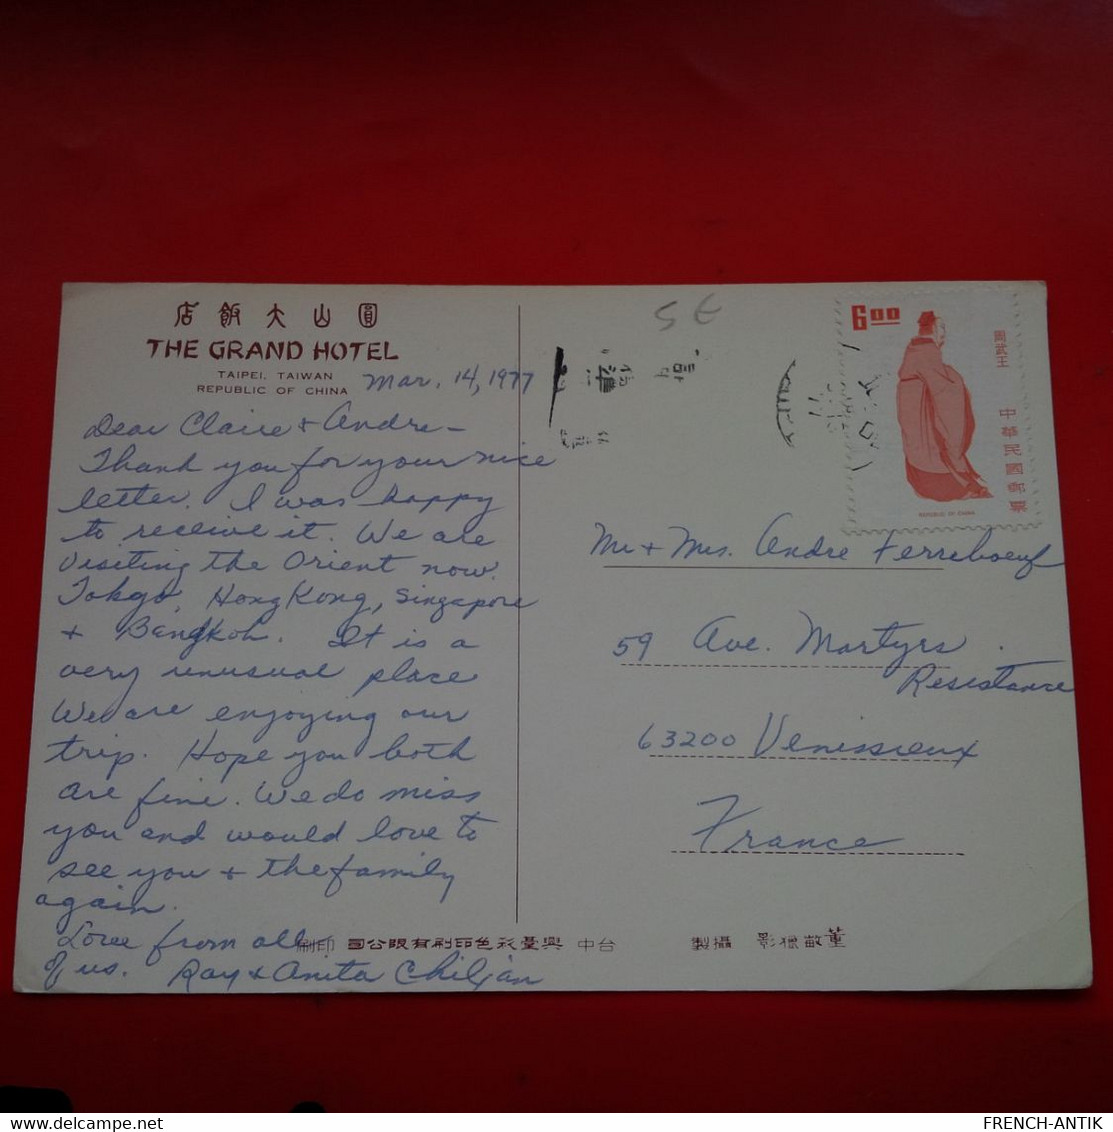 店飯大山圓
THE GRAND HOTEL
TAIPEI, TAIWAN
REPUBLIC OF CHINA
Mar. 14, 1977
Dear Claire & Andre -
Thank you for your nice
letter. I was happy
to receive it. We are
visiting the Orient now.
Tokyo, Hong Kong, Singapore
+ Bangkok. It is a
very unusual place
We are enjoying our
trip. Hope you both
are fine. We do miss
you and would love to
see you + the family
again.
Love from all
of us. Ray & Anita Chiljan
刷印 司公限有刷印色彩臺興 中台
製攝 影獵畝董
SE
6 00
周武王
中華民國郵票
REPUBLIC OF CHINA
Mr + Mrs. Andre Ferreboeuf
59 Ave. Martyrs
Resistance
63200 Venissieux
France
FRENCH-ANTIK